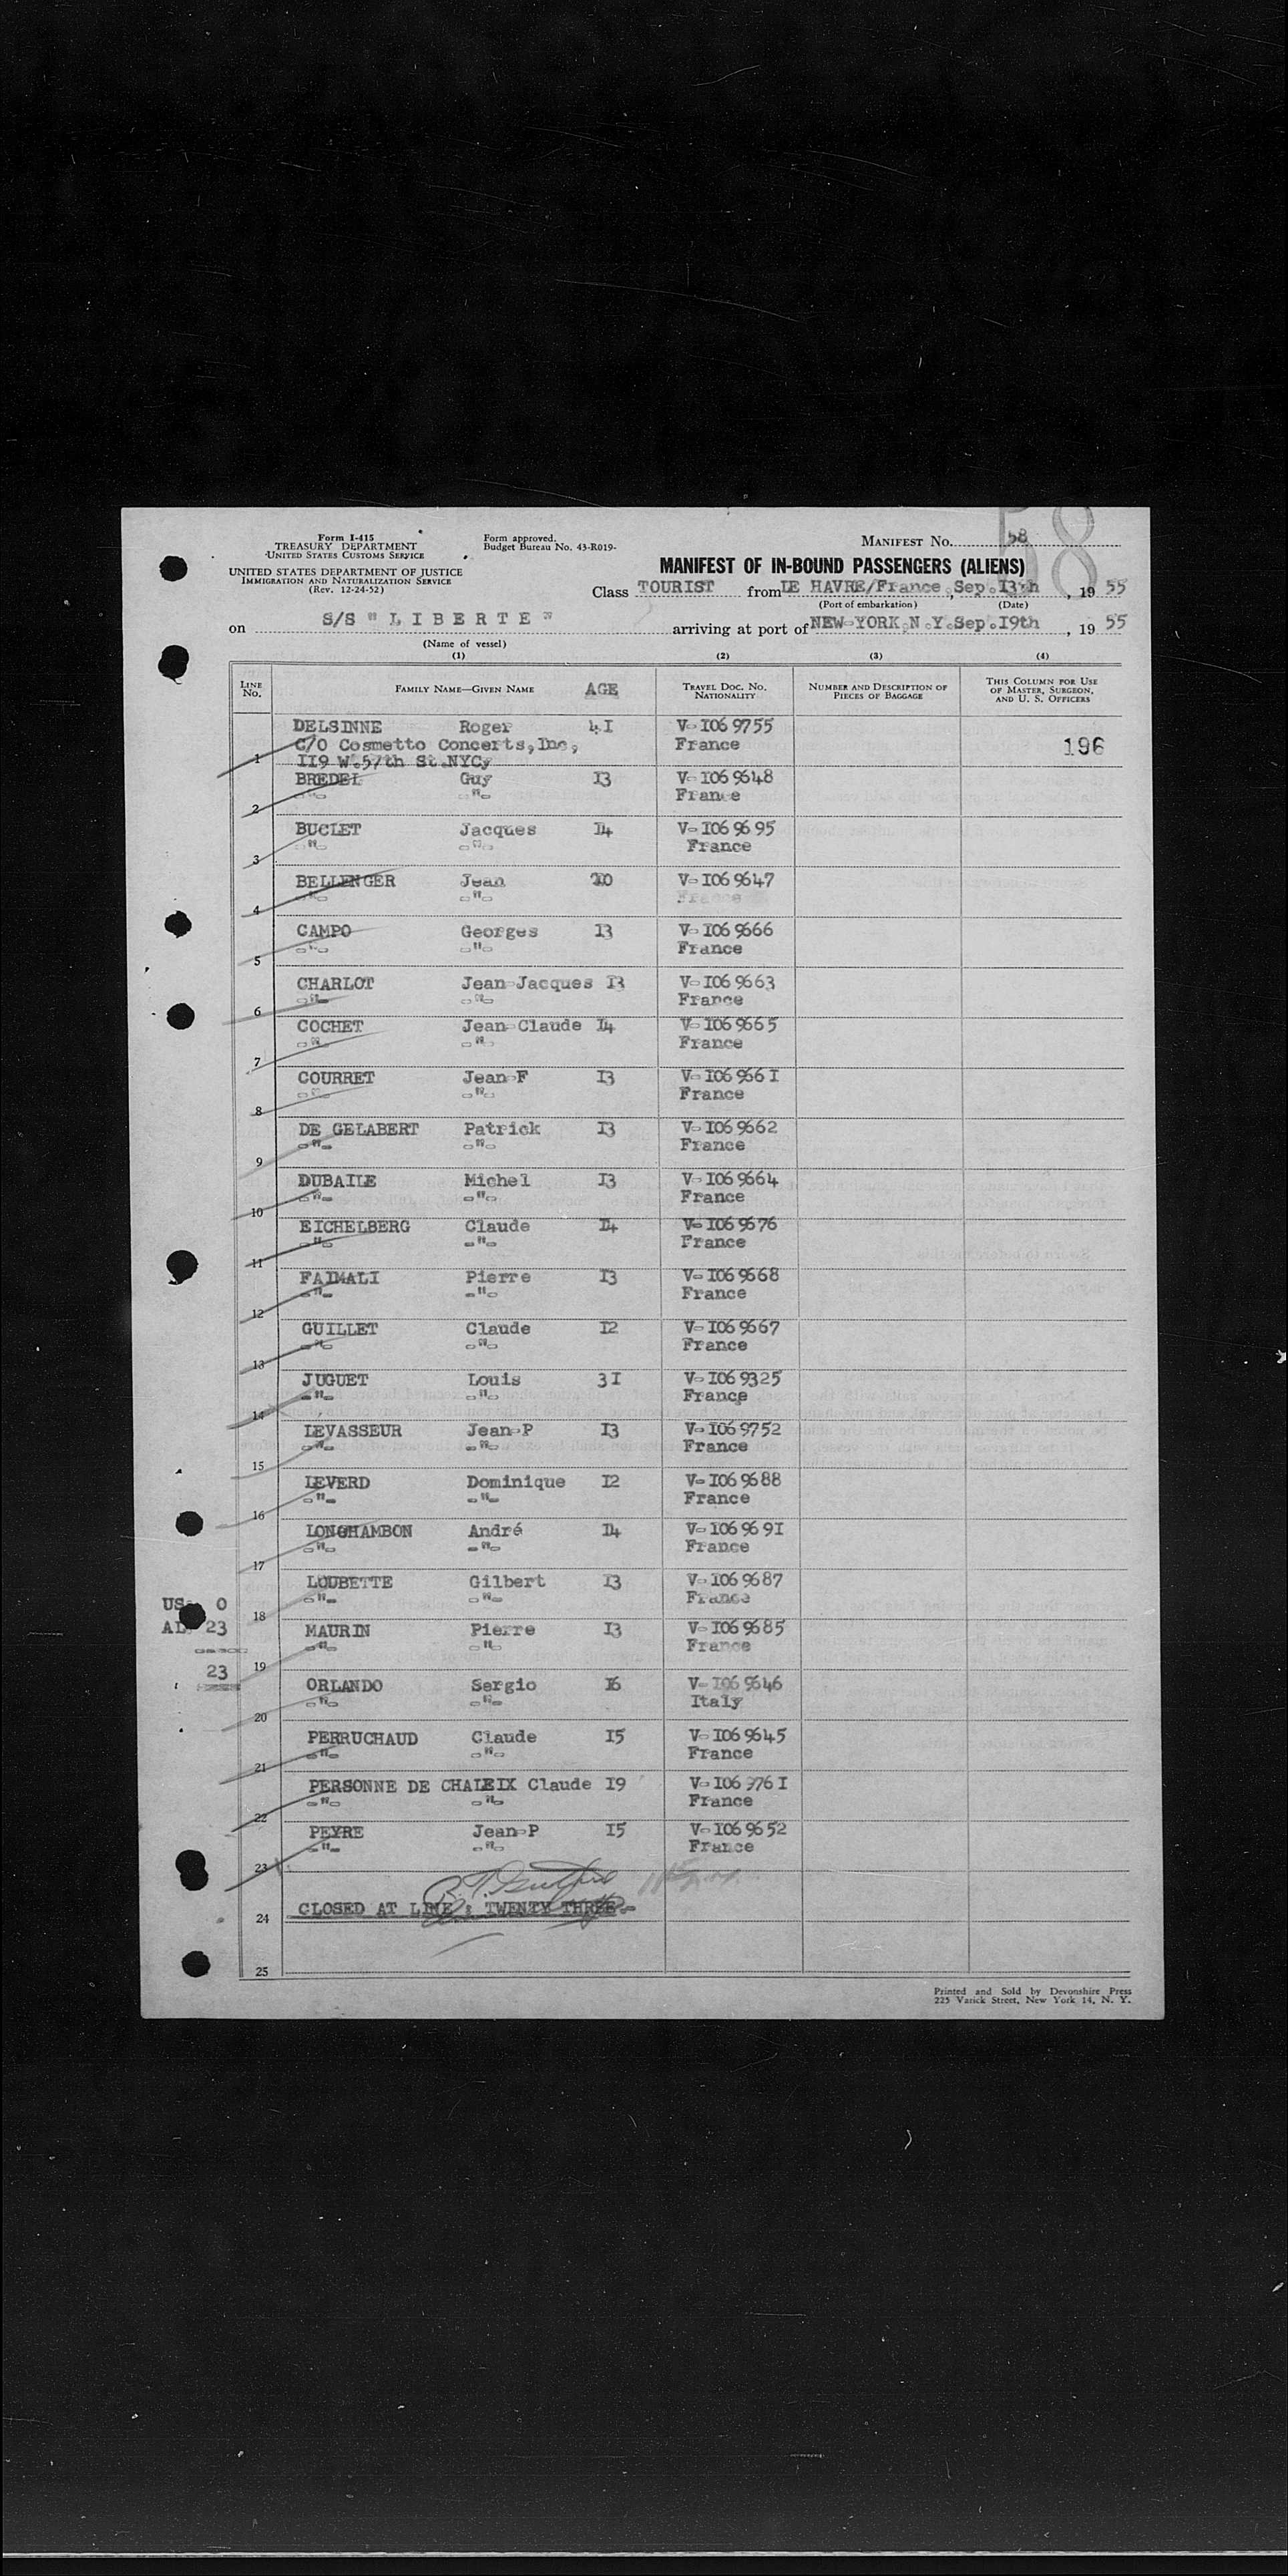 Form I-415
TREASURY DEPARTMENT
UNITED STATES CUSTOMS SERVICE
Form approved.
Budget Bureau No. 43-R019-
UNITED STATES DEPARTMENT OF JUSTICE
IMMIGRATION AND NATURALIZATION SERVICE
(Rev. 12-24-52)
58
MANIFEST NO. 58
MANIFEST OF IN-BOUND PASSENGERS (ALIENS)
Class TOURIST from LE HAVRE/France, Sep.I3th, 19 55
(Port of embarkation) (Date)
on S/S " L I B E R T E " arriving at port of NEW-YORK.N.Y.Sep.I9th, 19 55
(Name of vessel)
(1) (2) (3) (4)
LINE NO. FAMILY NAME—GIVEN NAME AGE TRAVEL DOC. NO. NATIONALITY NUMBER AND DESCRIPTION OF PIECES OF BAGGAGE THIS COLUMN FOR USE OF MASTER, SURGEON, AND U. S. OFFICERS
DELSINNE Roger 4I V-I069755
C/O Cosmetto Concerts,Inc, France 196
1 II9 W.57th St.NYCy
BREDEL Guy I3 V-I069648
2 -"- -"- France
BUCLET Jacques I4 V-I069695
3 -"- -"- France
BELLENGER Jean V-I069647
4 -"- -"- France
CAMPO Georges I3 V-I069666
5 -"- -"- France
CHARLOT Jean-Jacques I3 V-I069663
6 -"- -"- France
COCHET Jean-Claude I4 V-I069665
7 -"- -"- France
COURRET Jean-F I3 V-I06966I
8 -"- -"- France
DE GELABERT Patrick I3 V-I069662
9 -"- -"- France
DUBAILE Michel I3 V-I069664
10 -"- -"- France
EICHELBERG Claude I4 V-I069676
11 -"- -"- France
FAIMALI Pierre I3 V-I069668
12 -"- -"- France
GUILLET Claude I2 V-I069667
13 -"- -"- France
JUGUET Louis 3I V-I069325
14 -"- -"- France
LEVASSEUR Jean-P I3 V-I069752
15 -"- -"- France
LEVERD Dominique I2 V-I069688
16 -"- -"- France
LONGHAMBON André I4 V-I06969I
17 -"- -"- France
LOUBETTE Gilbert I3 V-I069687
18 -"- -"- France
US: 0
MAURIN Pierre I3 V-I069685
AL: 23
19 -"- -"- France
23
ORLANDO Sergio I6 V-I069646
20 -"- -"- Italy
PERRUCHAUD Claude I5 V-I069645
21 -"- -"- France
PERSONNE DE CHALEIX Claude I9 V-I06976I
22 -"- -"- France
PEYRE Jean-P I5 V-I069652
23 -"- -"- France
24 CLOSED AT LINE : TWENTY THREE.-
25
Printed and Sold by Devonshire Press
225 Varick Street, New York 14, N. Y.